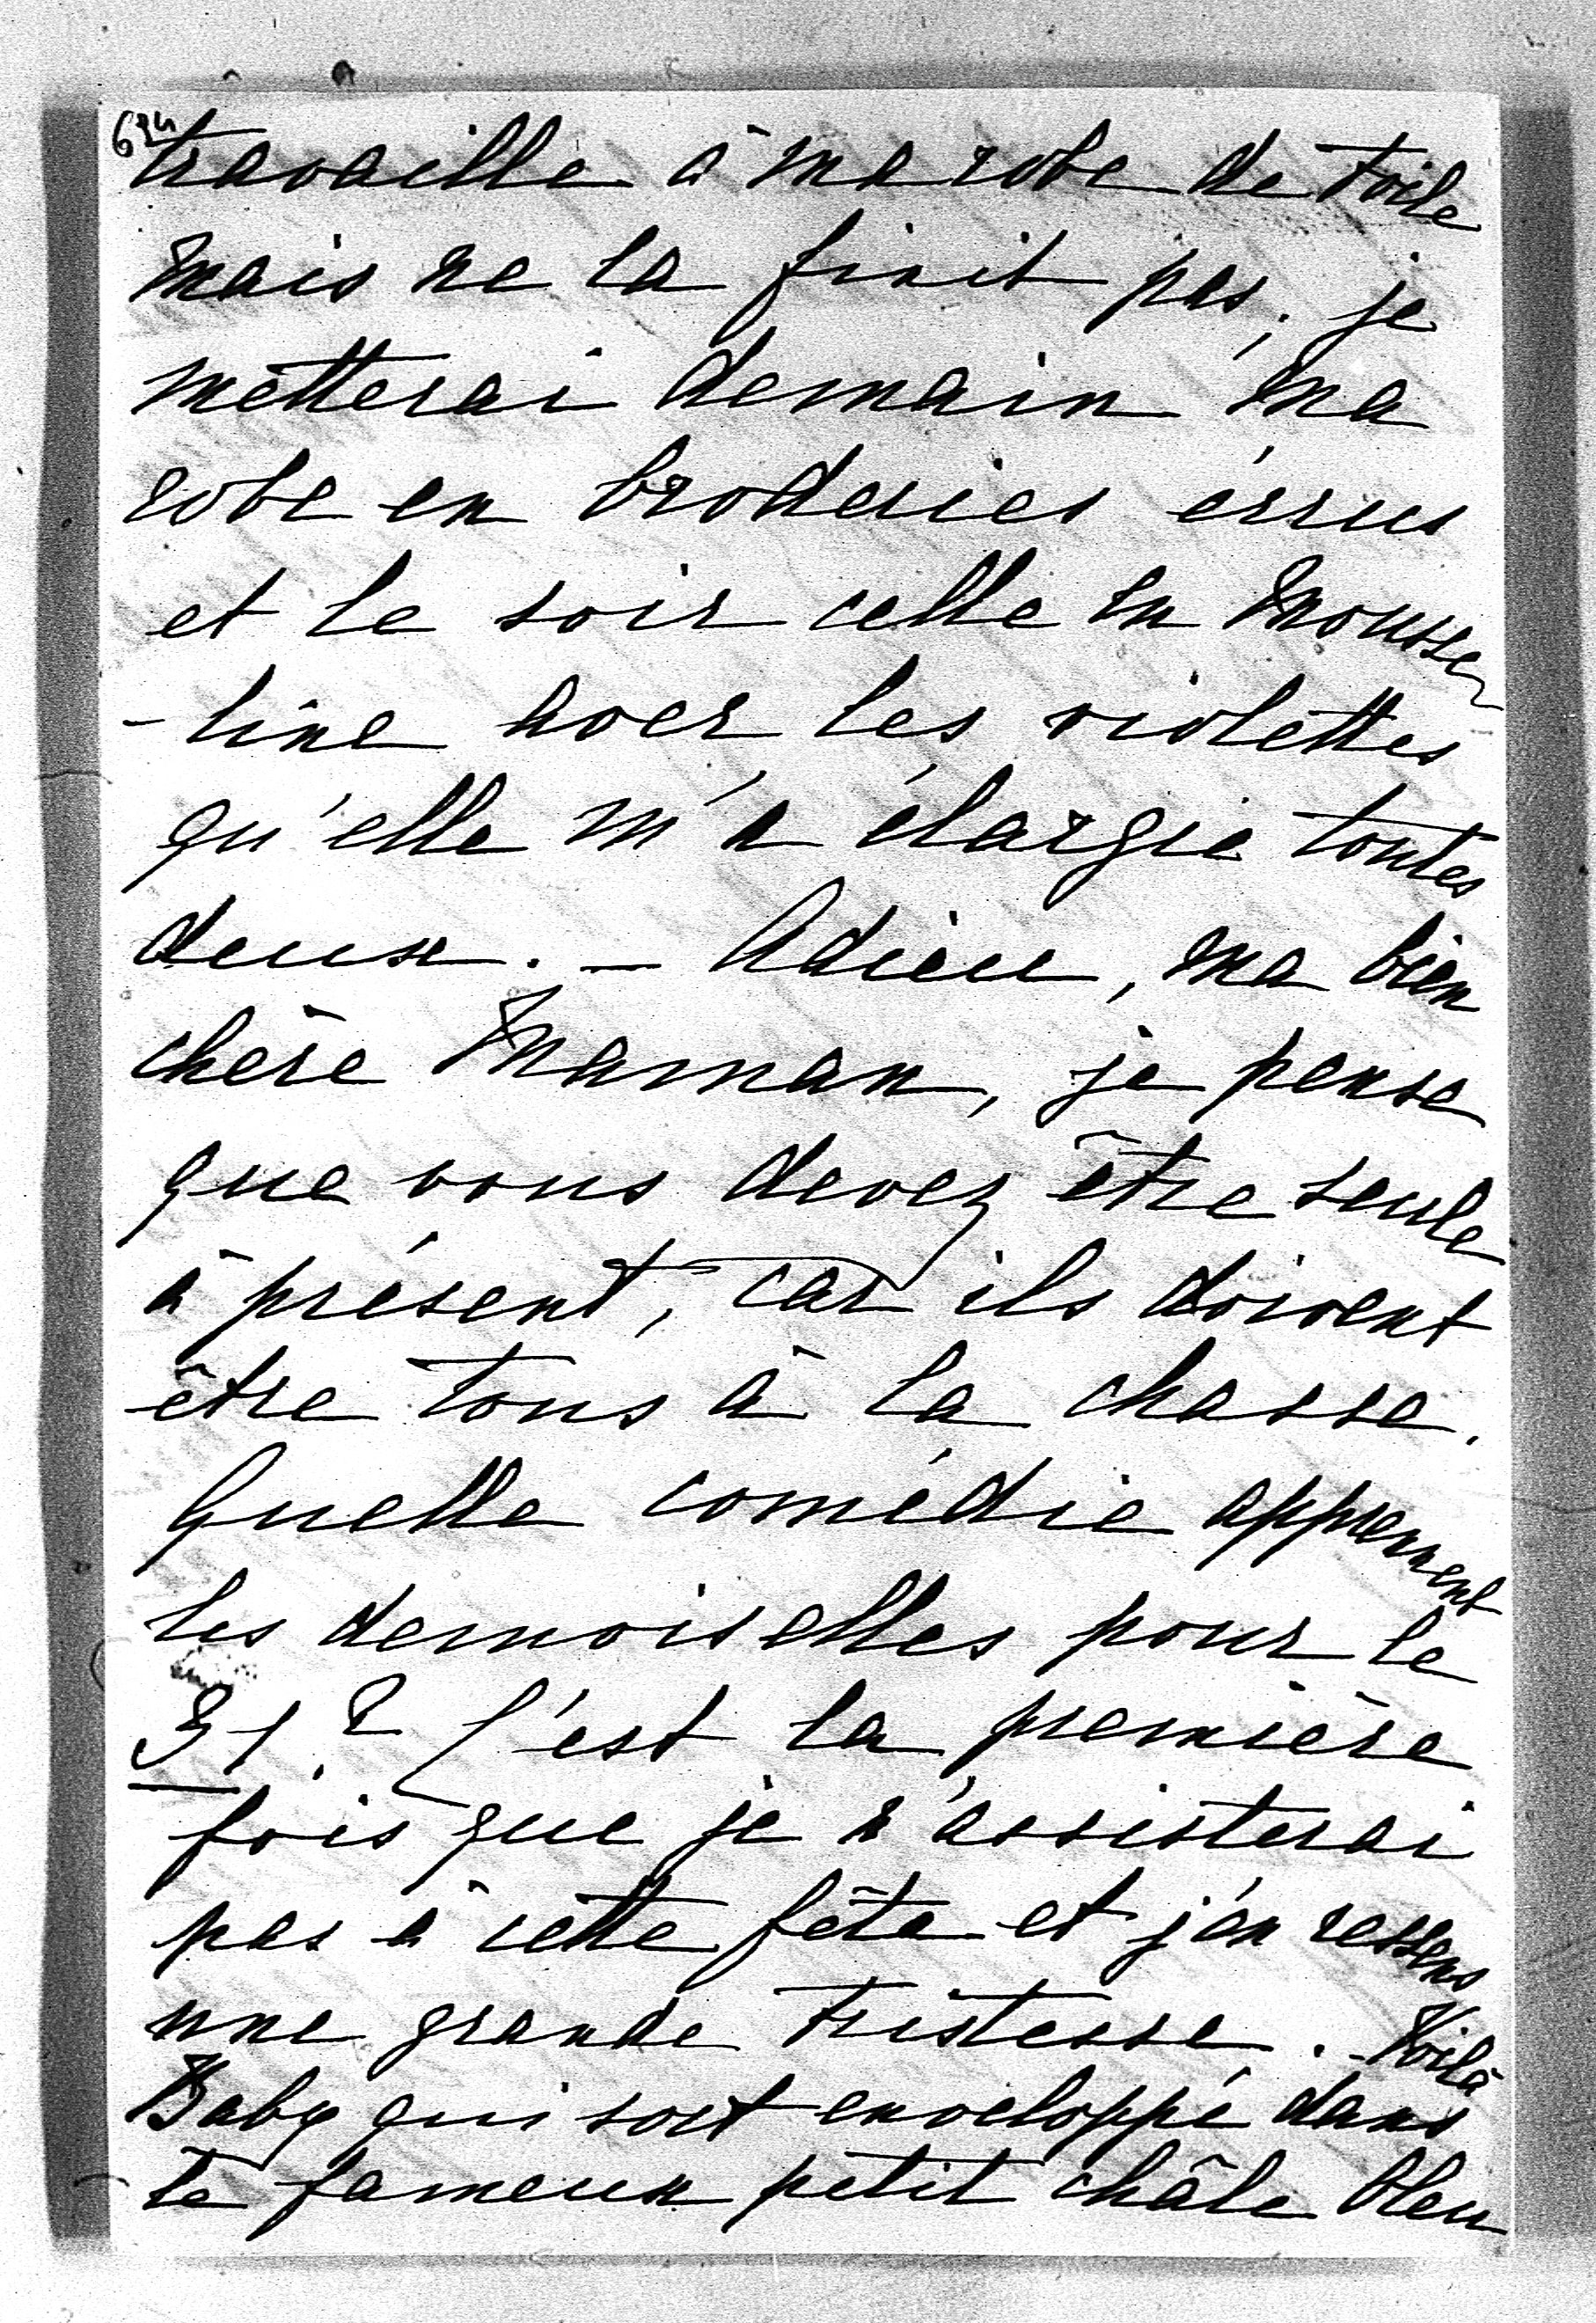 624
travaille à ma robe de toile
mais ne la finit pas, je
metterai demain ma
robe en broderies érrus
et le soir celle en mousse
-line avec les violettes
qu'elle m'a élargie toutes
deux. — Adieu, ma bien
chère Maman, je pense
que vous devez être seule
à présent, car ils doivent
être tous à la chasse.
Quelle comédie apprennent
les demoiselles pour le
31? C'est la première
fois que je n'assisterai
pas à cette fête et j'en ressens
une grande tristesse. - Voilà
Baby qui sort enveloppé dans
le fameux petit châle bleu